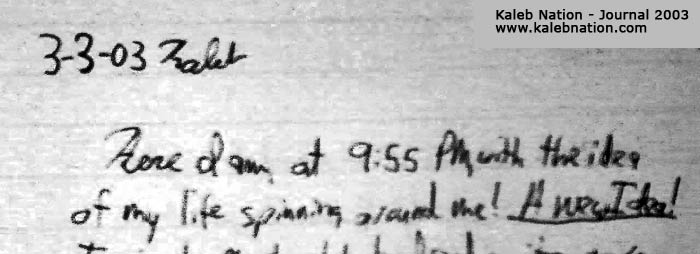 Kaleb Nation - Journal 2003
www.kalebnation.com
3-3-03 Kaleb
Here I am, at 9:55 PM, with the idea
of my life spinning around me! A new Idea!